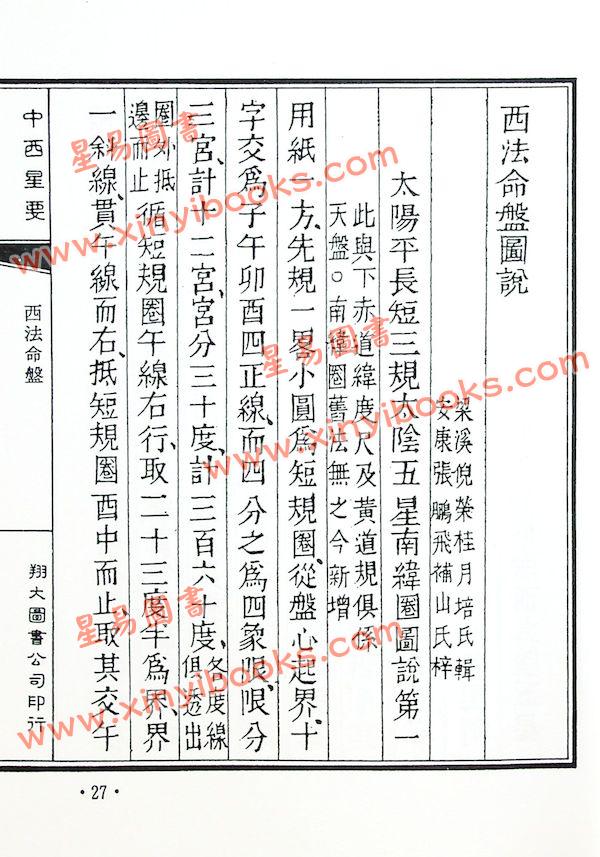 西法命盤圖說
梁溪倪榮桂月培氏輯
安康張鵬飛補山氏梓
太陽平長短三規太陰五星南緯圈圖說第一
此與下赤道緯度尺及黃道規俱係
天盤。南緯圈舊法無之今新增
用紙一方、先規一畧小圓爲短規圈、從盤心起界、十
字交爲子午卯酉四正線、而四分之爲四象限、限分
三宮、計十二宮、宮分三十度、計三百六十度、各度線俱透出
圈外抵邊而止循短規圈午線右行、取二十三度半爲界、界
一斜線、貫午線而右、抵短規圈酉中而止、取其交午
中西星要
西法命盤
翔大圖書公司印行
·27·
星易圖書
www.xinyibooks.com
星易圖書
www.xinyibooks.com
星易圖書
www.xinyibooks.com